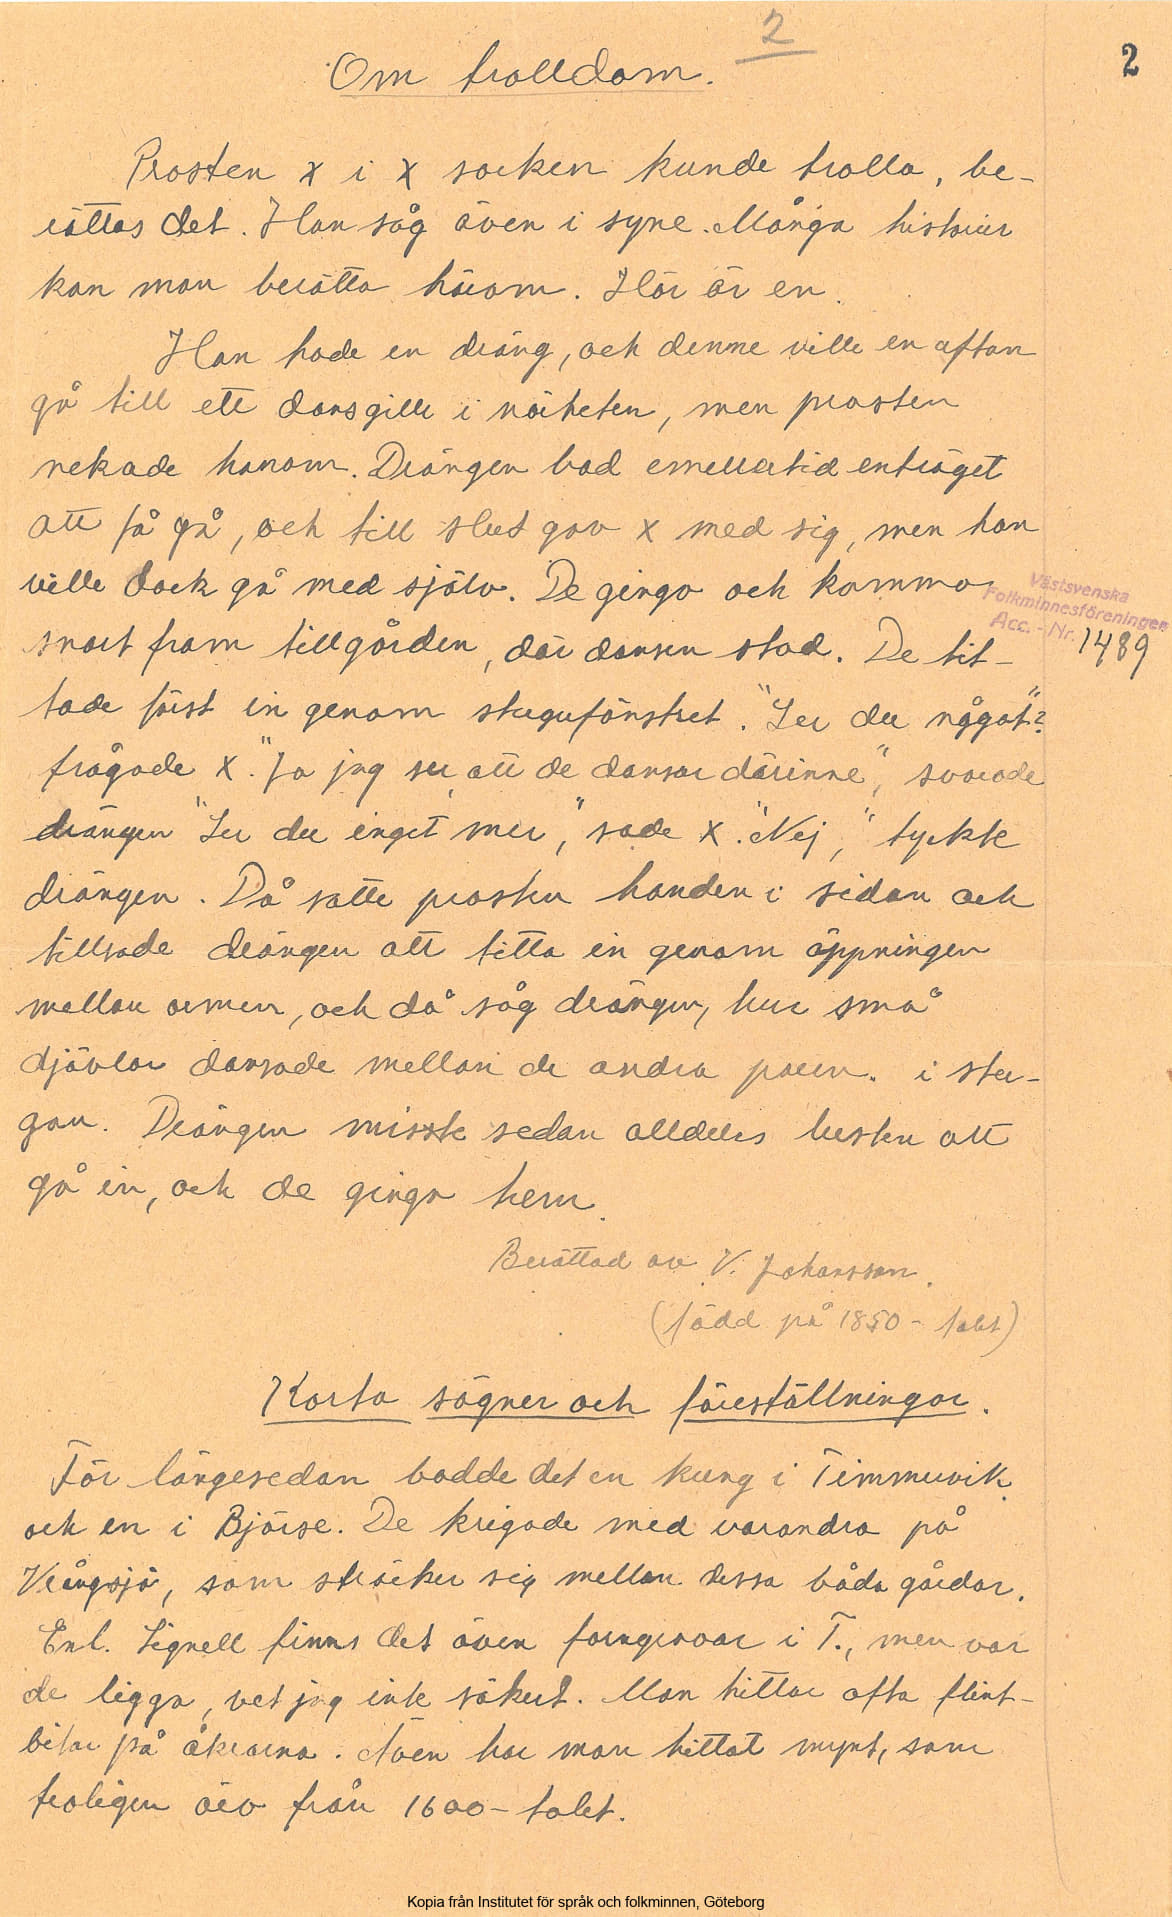 2
2
Om trolldom.
Prosten X i X socken kunde trolla, be-
rättas det. Han såg även i syne. Många historier
kan man berätta härom. Här är en.
Han hade en dräng, och denne ville en afton
gå till ett dansgille i närheten, men prosten
nekade honom. Drängen bad emellertid enträget
att få gå, och till slut gav X med sig, men han
ville dock gå med själv. De gingo och kommo
snart fram till gården, där dansen stod. De tit-
tade först in genom stugufönstret. "Ser du något"?
frågade X. "Ja jag ser, att de dansar därinne", svarade
drängen "Ser du inget mer", sade X. "Nej," tyckte
drängen. Då satte prosten handen i sidan och
tillsade drängen att titta in genom öppningen
mellan armen, och då såg drängen, hur små
djävlar dansade mellan de andra paren. i stu-
gan. Drängen misste sedan alldeles lusten att
gå in, och de gingo hem.
Berättad av V. Johansson.
(född på 1850-talet)
Korta sägner och föreställningar.
För längesedan bodde det en kung i Timmervik
och en i Björse. De krigade med varandra på
Vrångsjö, som sträcker sig mellan dessa båda gårdar.
Enl. Lignell finns det även forngravar i T., men var
de ligga, vet jag inte säkert. Man hittar ofta flint-
bitar på åkrarna. Även har man hittat mynt, som
troligen äro från 1600-talet.
Västsvenska
Folkminnesföreningen
Acc. - Nr. 1489
Kopia från Institutet för språk och folkminnen, Göteborg